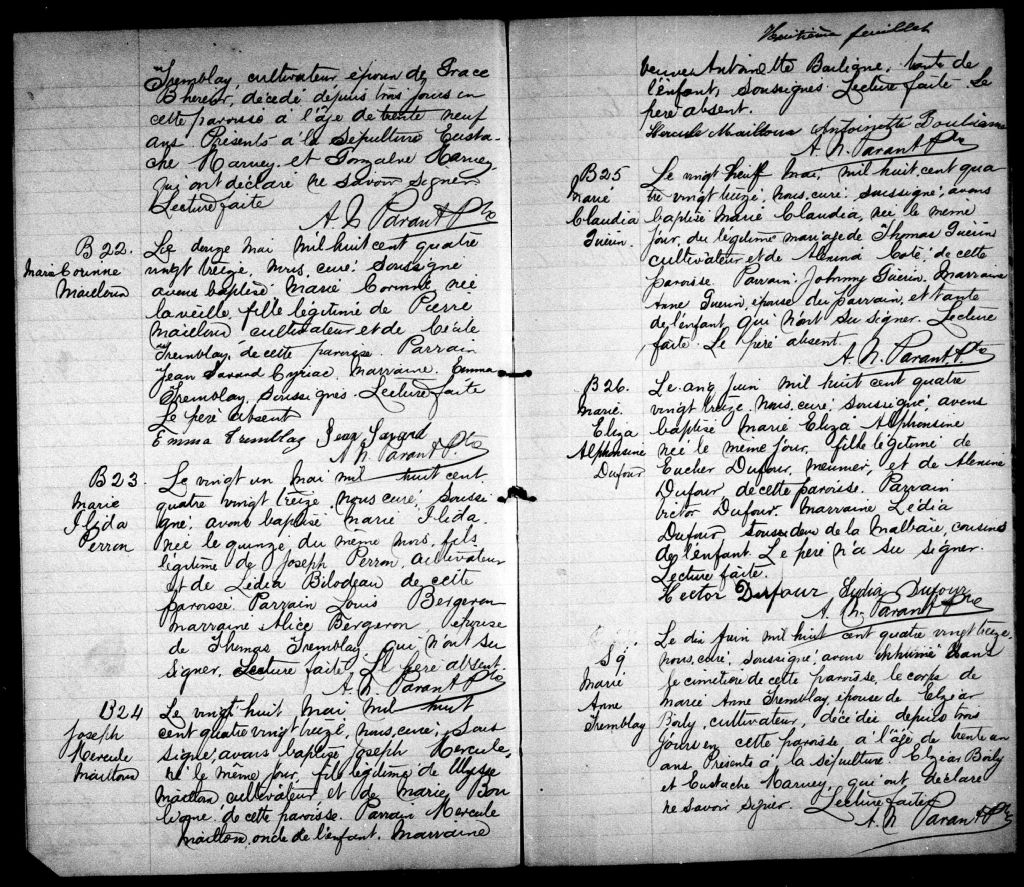 Tremblay cultivateur époux de Grace
B hereor, décédé depuis trois jours en
cette paroisse à l'âge de trente neuf
ans. Présents à la sépulture Eusta-
che Harvey et Gonzalve Harvey
qui ont déclaré ne savoir signer.
Lecture faite
A. N. Parant Ptre
B 22.
Marie Corinne
Mailloux
Le douze mai mil huit cent quatre
vingt treize, nous, curé soussigné
avons baptisé Marie Corinne née
la veille, fille légitime de Pierre
Mailloux cultivateur et de Cécile
Tremblay, de cette paroisse. Parrain
Jean Savard Cyriac, Marraine Emma
Tremblay, soussignés. Lecture faite
Le père absent
Emma Tremblay Jean Savard
A. N. Parant Ptre
B 23
Marie
Ilida
Perron
Le vingt un mai mil huit cent
quatre vingt treize, nous curé, soussi-
gné, avons baptisé Marie Ilida.
née le quinze du même mois, fils
légitime de Joseph Perron, cultivateur
et de Lédia Bilodeau de cette
paroisse. Parrain Louis Bergeron
marraine Alice Bergeron, épouse
de Thomas Tremblay qui n'ont su
signer. Lecture faite. Le père absent.
A. N. Parant Ptre
B 24
Joseph
Hercule
Mailloux
Le vingt huit Mai mil huit
cent quatre vingt treize, nous, curé, sous
signé, avons baptisé Joseph Hercule,
né le même jour, fils légitime de Ulysse
Mailloux, cultivateur, et de Marie Bou
ligne de cette paroisse. Parrain Hercule
Mailloux, oncle de l'enfant. Marraine
Huitième feuillet
veuve Antoinette Bouligne, tante de
l'enfant, soussignés. Lecture faite. Le
père absent.
Hercule Mailloux Antoinette Boulianne
A. N. Parant Ptre
B 25
Marie
Claudia
Guérin.
Le vingt neuf Mai, mil huit cent qua
tre vingt treize, nous, curé soussigné, avons
baptisé Marie Claudia, née le même
jour, du légitime mariage de Thomas Guérin
cultivateur et de Alexina Coté, de cette
paroisse. Parrain Johnny Guérin, Marraine
Anne Guérin, épouse du parrain, et tante
de l'enfant, qui n'ont su signer. Lecture
faite. Le père absent.
A. N. Parant Ptre
B 26.
Marie
Eliza
Alphonsine
Dufour
Le cinq Juin mil huit cent quatre
vingt treize, nous, curé soussigné, avons
baptisé Marie Eliza Alphonsine
née le même jour, fille légitime de
Eucher Dufour, meunier, et de Alexina
Dufour de cette paroisse. Parrain
Victor Dufour. Marraine Lédia
Dufour, tous deux de la Malbaie, cousins
de l'enfant. Le père n'a su signer.
Lecture faite.
Hector Dufour Lydia Dufour
A. N. Parant Ptre
S 9
Marie
Anne
Tremblay
Le dix Juin mil huit cent quatre vingt treize,
nous, curé, soussigné, avons inhumé dans
le cimetière de cette paroisse, le corps de
Marie Anne Tremblay, épouse de Elzéar
Boily, cultivateur, décédée depuis trois
jours en cette paroisse à l'âge de trente un
ans. Présents à la sépulture Elzéar Boily
et Eustache Harvey, qui ont déclaré
ne savoir signer. Lecture faite
A. N. Parant Ptre